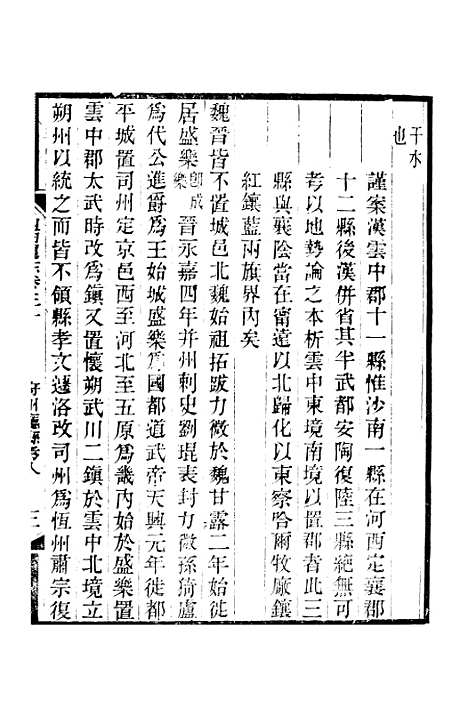 干水
也
謹案漢雲中郡十一縣惟沙南一縣在河西定襄郡
十二縣後漢併省其半武都安陶復陸三縣絕無可
考以地勢論之本析雲中東境南境以置郡者此三
縣與襄陰當在甯遠以北歸化以東察哈爾牧廠鑲
紅鑲藍兩旗界內矣
魏晉皆不置城邑北魏始祖拓跋力微於魏甘露二年始徙
居盛樂卽成樂晉永嘉四年并州刺史劉琨表封力微孫猗盧
爲代公進爵爲王始城盛樂爲國都道武帝天興元年徙都
平城置司州定京邑西至河北至五原爲畿內始於盛樂置
雲中郡太武時改爲鎮又置懷朔武川二鎮於雲中北境立
朔州以統之而皆不領縣孝文遷洛改司州爲恆州肅宗復